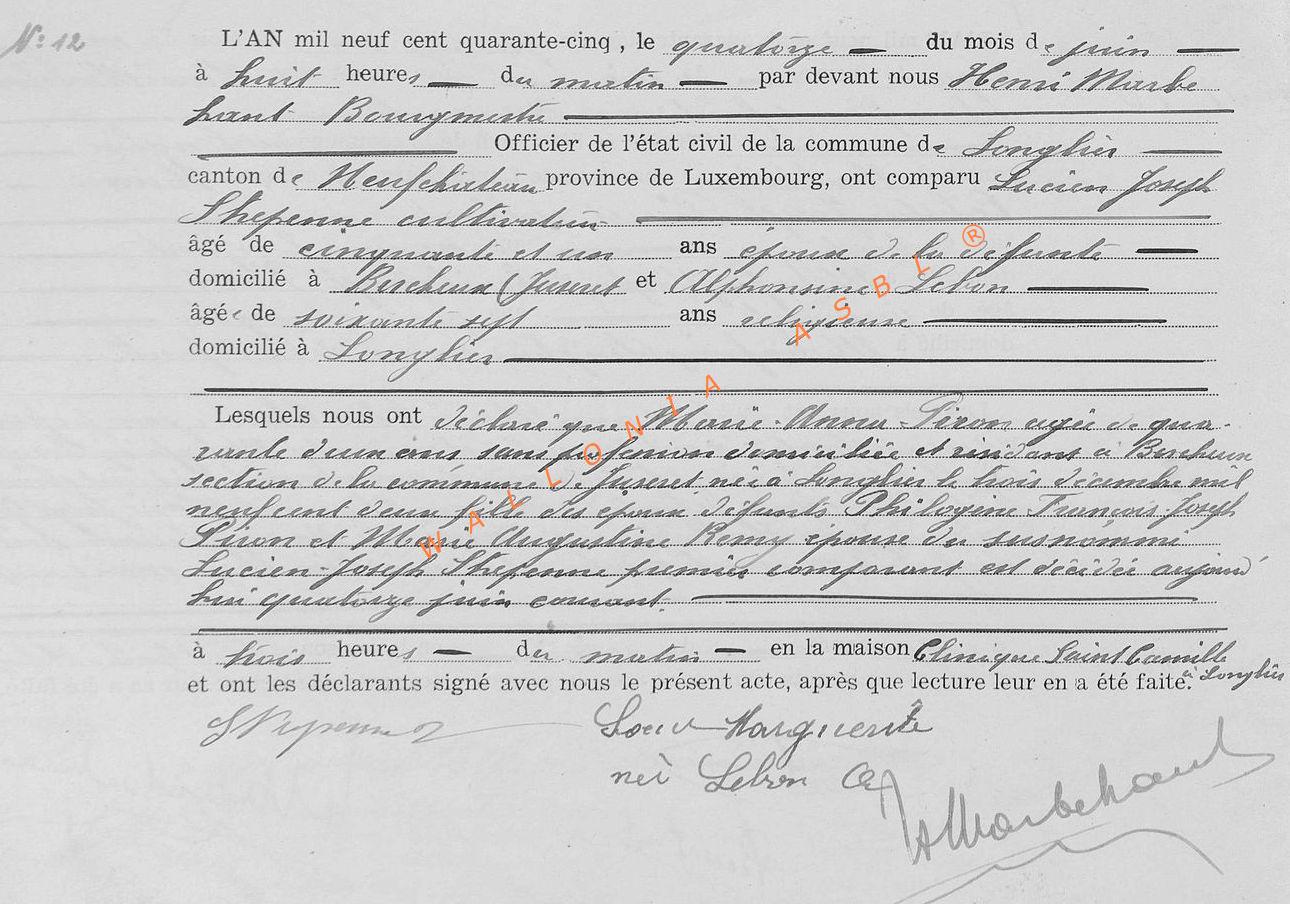 N° 12
L'AN mil neuf cent quarante-cinq, le quatorze du mois de juin
à huit heures du matin par devant nous Henri Marbe
hant Bourgmestre
Officier de l'état civil de la commune de Longlier
canton de Neufchâteau province de Luxembourg, ont comparu Lucien Joseph
Shepenne cultivateur
âgé de cinquante et un ans époux de la défunte
domicilié à Bercheux (Juseret et Alphonsine Lebon
âgée de soixante sept ans religieuse
domicilié à Longlier
Lesquels nous ont déclaré que Marie-Anna Piron agée de qua-
rante deux ans sans profession domiciliée et résidant à Bercheux
section de la commune de Juseret, née à Longlier le trois décembre mil
neuf cent deux fille des époux défunts Philogène François Joseph
Piron et Marie Augustine Remy épouse du susnommé
Lucien-Joseph Shepenne premier comparant est décédée aujourd'
hui quatorze juin courant.
à trois heures du matin en la maison Clinique Saint Camille
à Longlier
et ont les déclarants signé avec nous le présent acte, après que lecture leur en a été faite.
Soeur Marguerite
née Lebon
HMarbehant
WALLONIA ASBL ®